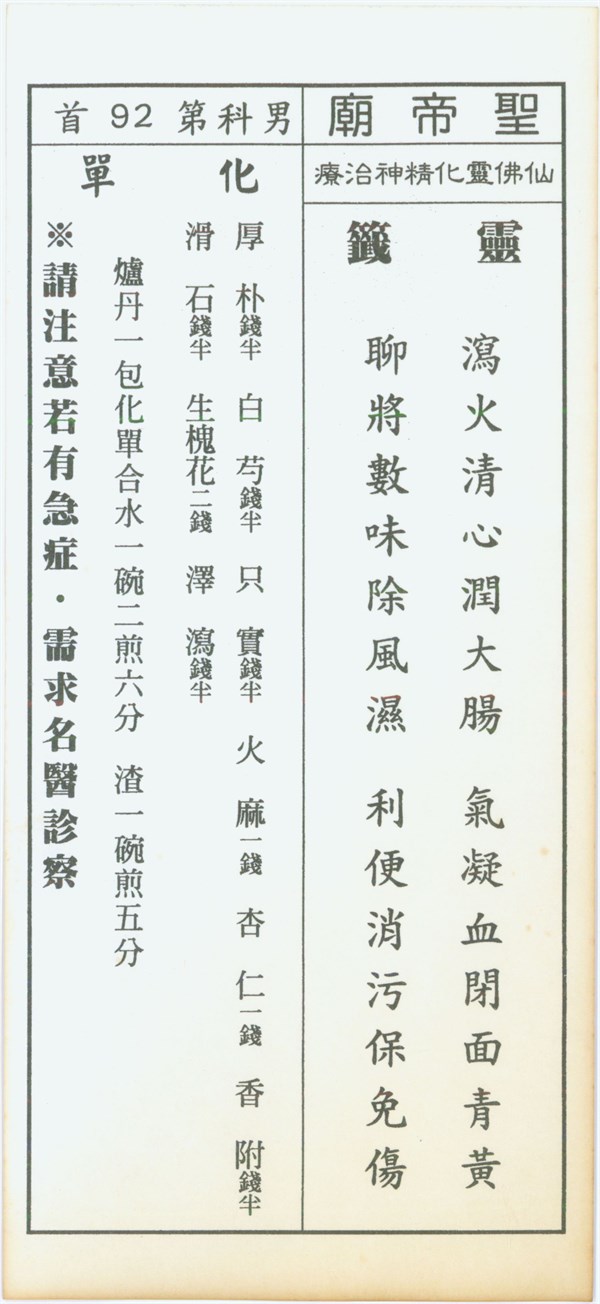 聖帝廟
仙佛靈化精神治療
靈籤
瀉火清心潤大腸 氣凝血閉面青黃
聊將數味除風濕 利便消污保免傷
男科第92首
化單
厚朴錢半 白芍錢半 只實錢半 火麻一錢 杏仁一錢 香附錢半
滑石錢半 生槐花二錢 澤瀉錢半
爐丹一包化單合水一碗二煎六分 渣一碗煎五分
※請注意若有急症・需求名醫診察